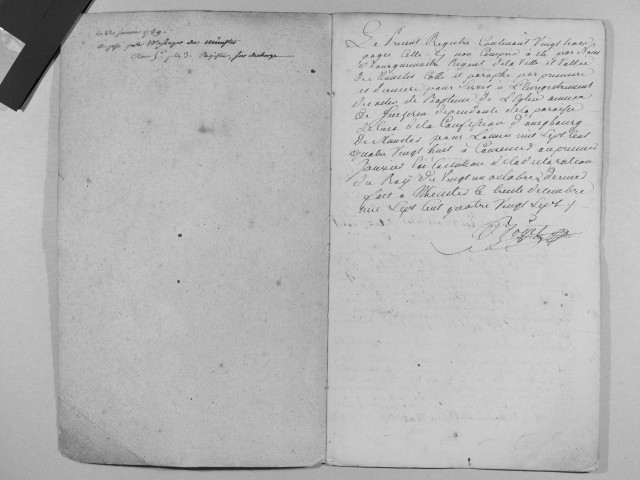 janvier 1789
Messager de Münster
Le Present Registre Contenant Vingt trois
pages Celle cy non Comprise à été par Nous
Bourguemaitre Regent de la Ville et Vallée
de Munster Cotté et paraphé par premiere
et derniere pour Servir à L'Enregistrement
des actes de Baptême de L'Eglise annexe
de dependante de la paroisse
de la Confession d'augsbourg
de Munster pour L'année mil Sept Cent
quatre Vingt huit à Commencer au premier
janvier En Execution de la declaration
du Roÿ du Vingt un octobre dernier
fait à Munster le trente decembre
mil Sept Cent quatre Vingt Sept ./.